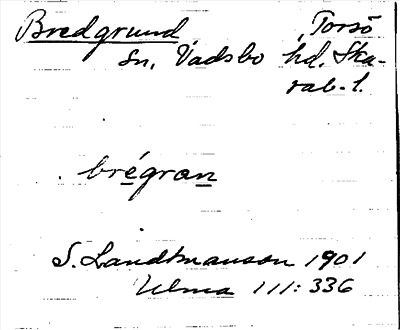 Bredgrund Torsö
sn, Vadsbo hd, Ska-
rab-l.
brégran
S. Landtmanson 1901
Ulma 111:336